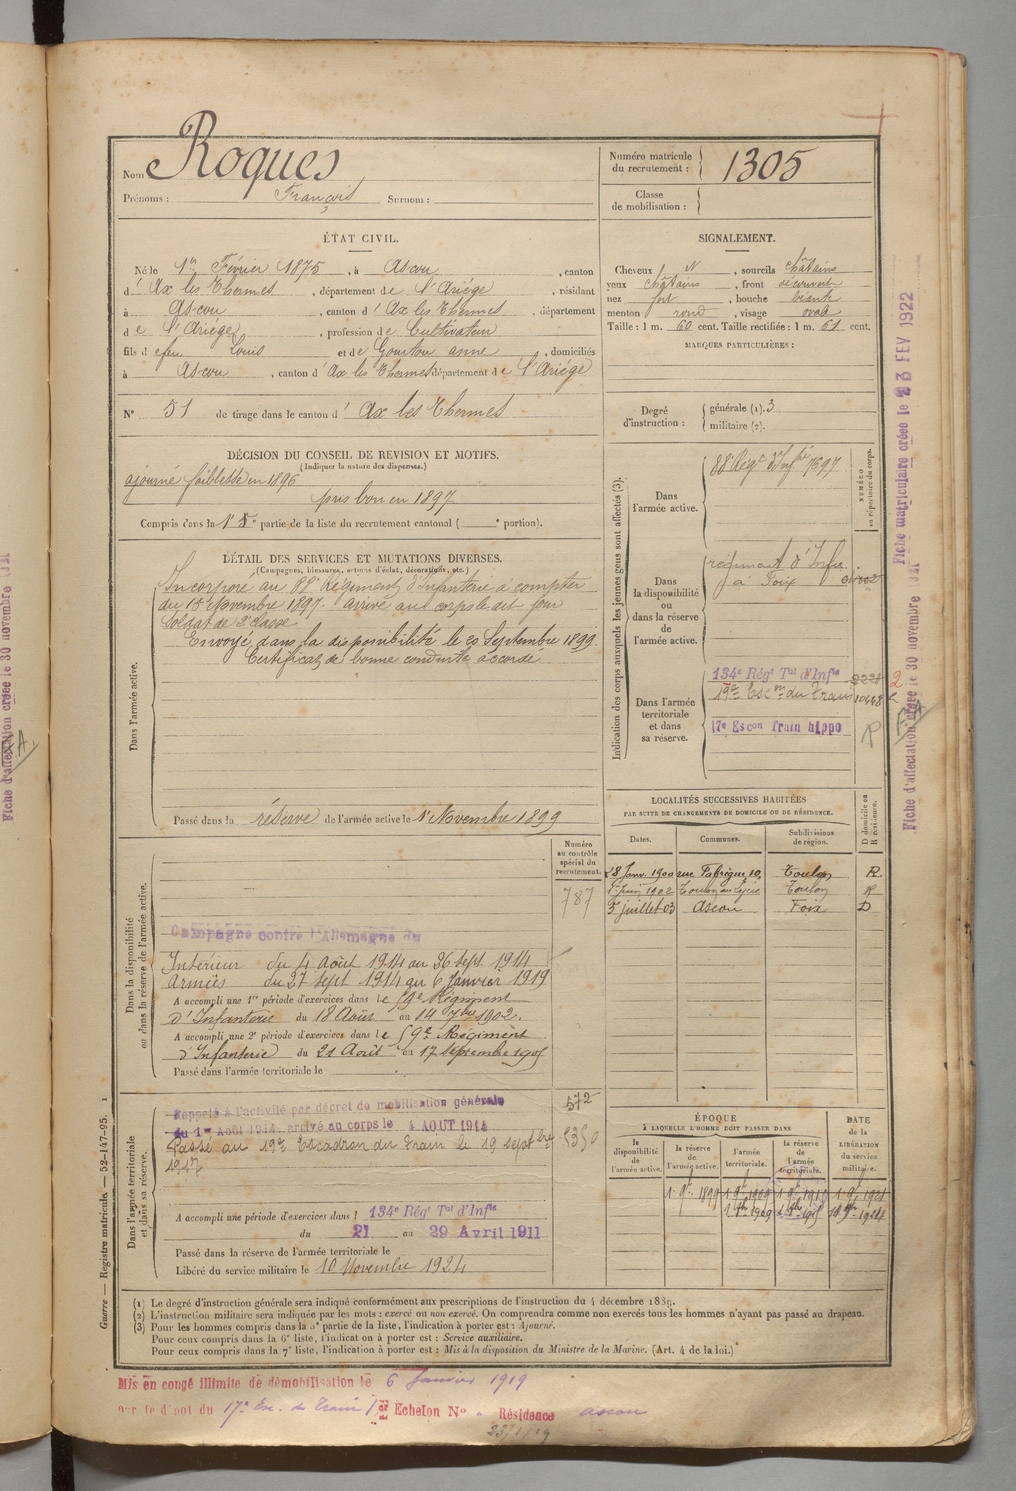 Nom Roques
Prénoms : François Surnom :
Numéro matricule du recrutement : 1305
Classe de mobilisation :
ÉTAT CIVIL.
Né le 1er Février 1875, à Ascou, canton
d' Ax les Thermes, département de l'Ariége, résidant
à Ascou, canton d' Ax les Thermes, département
de l'Ariége, profession de Cultivateur
fils d efeu Louis et de Gourdou anne, domiciliés
à Ascou, canton d' Ax les Thermes département de l'Ariége
N° 51 de tirage dans le canton d' Ax les Thermes
SIGNALEMENT.
Cheveux N, sourcils châtains
yeux châtains, front découvert
nez fort, bouche béante
menton rond, visage oval
Taille : 1 m. 60 cent. Taille rectifiée : 1 m. 61 cent.
MARQUES PARTICULIÈRES :
Degré d'instruction : générale (1). 3
militaire (2).
DÉCISION DU CONSEIL DE REVISION ET MOTIFS.
(Indiquer la nature des dispenses.)
ajourné faiblesse en 1896
pris bon en 1897
Compris dans la 1re 5e partie de la liste du recrutement cantonal ( e portion).
DÉTAIL DES SERVICES ET MUTATIONS DIVERSES.
(Campagnes, blessures, actions d'éclat, décorations, etc.)
Dans l'armée active.
Incorporé au 88e Régiment d'infanterie à compter
du 15 Novembre 1897. arrivé au corps le dit jour
Soldat de 2e classe
Envoyé dans la disponibilité le 20 Septembre 1899
Certificat de bonne conduite accordé
Passé dans la réserve de l'armée active le 1er Novembre 1899
Indication des corps auxquels les jeunes gens sont affectés (3).
NUMÉRO au répertoire du corps.
Dans l'armée active.
88e Régt d'Infie 7597
Dans la disponibilité ou dans la réserve de l'armée active.
régiment d'Infie
à Foix
Dans l'armée territoriale et dans sa réserve.
134e Régt Tal d'Infie 2221
19e Escon du Train 10448
17e Escon Train hippo R
LOCALITÉS SUCCESSIVES HABITÉES
PAR SUITE DE CHANGEMENTS DE DOMICILE OU DE RÉSIDENCE.
Dates. Communes. Subdivisions de région. D domicile ou R résidence.
28 Janv. 1900 rue Fabrègue 10, Toulon R
1er Juin 1902 Toulon au Lycée Toulon R
5 juillet 03 Ascou Foix D
Dans la disponibilité ou dans la réserve de l'armée active.
Numéro au contrôle spécial du recrutement.
787
Campagne contre l'Allemagne du
Intérieur du 4 Août 1914 au 26 sept 1914
Armées du 27 sept 1914 au 6 Janvier 1919
A accompli une 1re période d'exercices dans le 59e Régiment
d'Infanterie du 18 Août au 14 7bre 1902.
A accompli une 2e période d'exercices dans le 59e Régiment
d'Infanterie du 21 Août au 17 septembre 1905
Passé dans l'armée territoriale le
Dans l'armée territoriale et dans sa réserve.
572
5350
Rappelé à l'activité par décret de mobilisation générale
du 1er Août 1914, arrivé au corps le 4 AOUT 1914
Passé au 19e Escadron du Train le 19 septbre
1917
A accompli une période d'exercices dans l 134e Régt Tal d'Infie
du 21 au 29 Avril 1911
Passé dans la réserve de l'armée territoriale le
Libéré du service militaire le 10 Novembre 1924
ÉPOQUE
À LAQUELLE L'HOMME DOIT PASSER DANS
la disponibilité de l'armée active.
la réserve de l'armée active.
l'armée territoriale.
la réserve de l'armée territoriale.
DATE de la LIBÉRATION du service militaire.
(1) Le degré d'instruction générale sera indiqué conformément aux prescriptions de l'instruction du 4 décembre 1889.
(2) L'instruction militaire sera indiquée par les mots : exercé ou non exercé. On comprendra comme non exercés tous les hommes n'ayant pas passé au drapeau.
(3) Pour les hommes compris dans la 5e partie de la liste, l'indication à porter est : Ajourné.
Pour ceux compris dans la 6e liste, l'indication à porter est : Service auxiliaire.
Pour ceux compris dans la 7e liste, l'indication à porter est : Mis à la disposition du Ministre de la Marine. (Art. 4 de la loi.)
Mis en congé illimité de démobilisation le 6 Janvier 1919
par le dépôt du 17e Esc. du Train 1er Echelon N° Résidence Ascou
23/1/19
Guerre — Registre matricule. — 52-147-95.
Fiche matriculaire créée le 23 FEV 1922
Fiche d'affectation créée le 30 novembre
Fiche d'affectation créée le 30 novembre